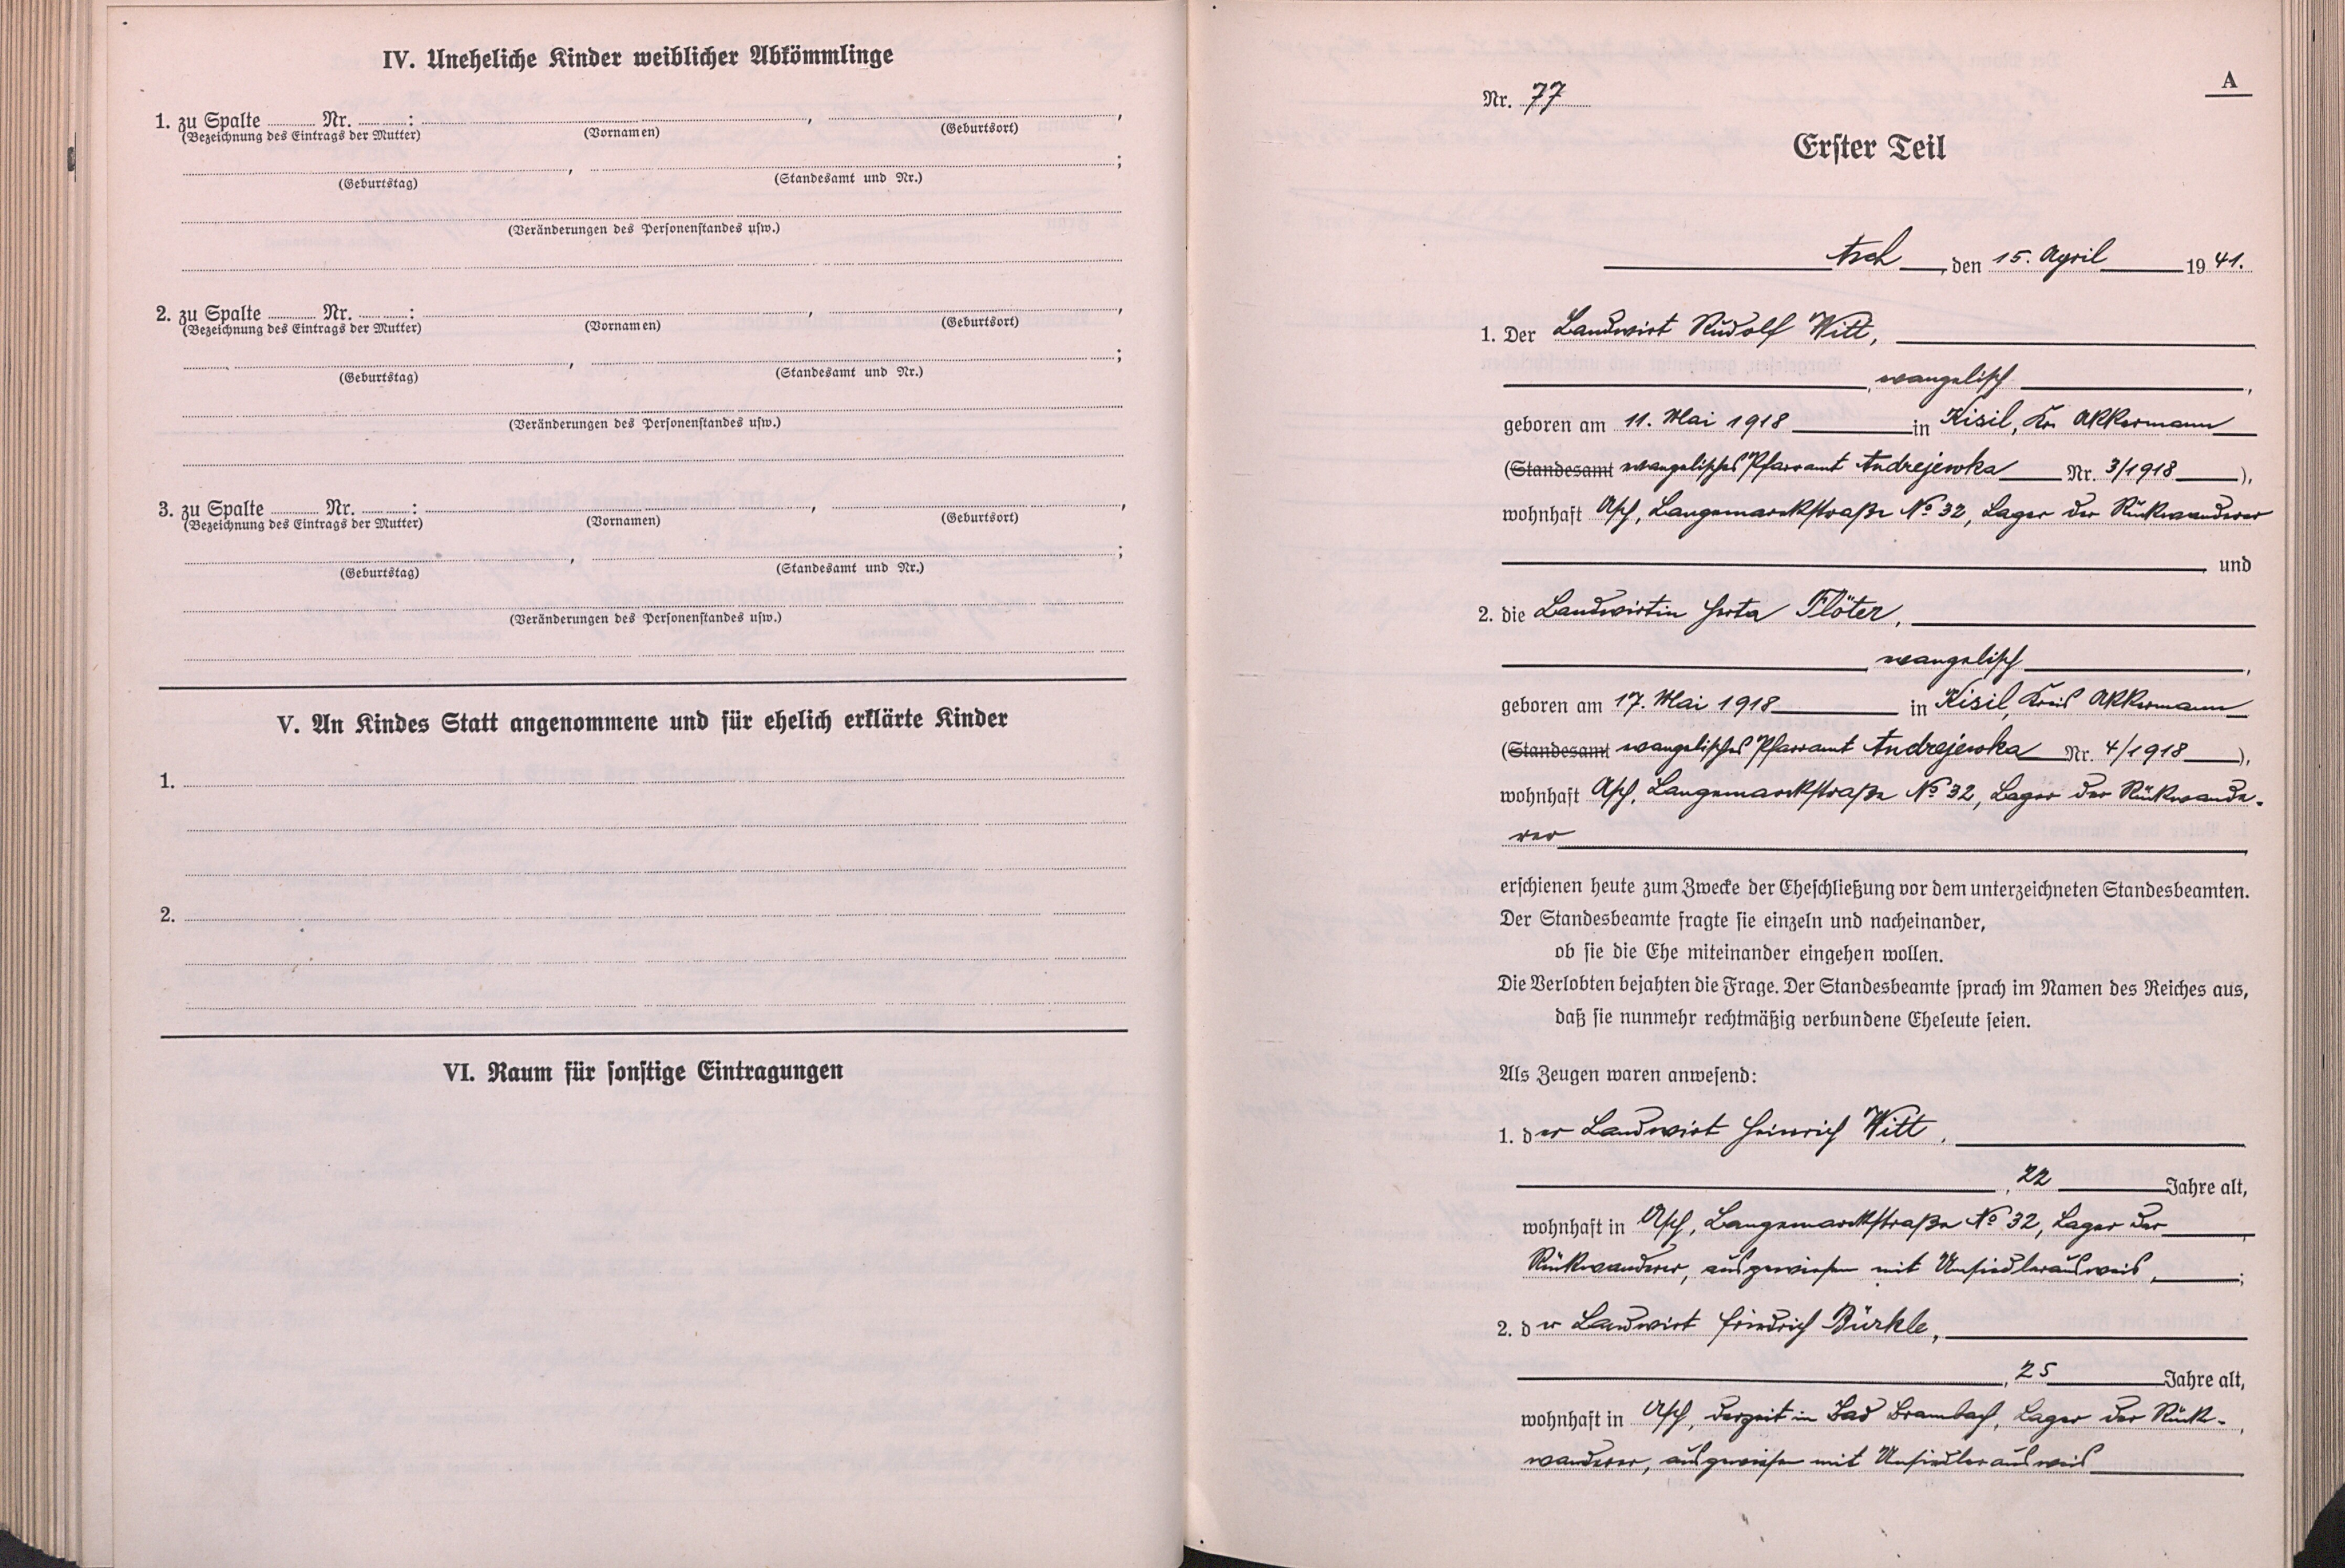 IV. Uneheliche Kinder weiblicher Abkömmlinge
1. zu Spalte ........ Nr. ........:
(Bezeichnung des Eintrags der Mutter) (Vornamen) (Geburtsort)
(Geburtstag) (Standesamt und Nr.)
(Veränderungen des Personenstandes usw.)
2. zu Spalte ........ Nr. ........:
(Bezeichnung des Eintrags der Mutter) (Vornamen) (Geburtsort)
(Geburtstag) (Standesamt und Nr.)
(Veränderungen des Personenstandes usw.)
3. zu Spalte ........ Nr. ........:
(Bezeichnung des Eintrags der Mutter) (Vornamen) (Geburtsort)
(Geburtstag) (Standesamt und Nr.)
(Veränderungen des Personenstandes usw.)
V. An Kindes Statt angenommene und für ehelich erklärte Kinder
1.
2.
VI. Raum für sonstige Eintragungen
A
Nr. 77
Erster Teil
Asch, den 15. April 1941.
1. Der Landwirt Rudolf Witt,
, evangelisch,
geboren am 11. Mai 1918 in Kisil, Kr. Akkermann
(Standesamt evangelisches Pfarramt Andrejewka Nr. 3/1918),
wohnhaft Asch, Langemarckstraße No 32, Lager der Rückwanderer
und
2. die Landwirtin Herta Flöter,
, evangelisch,
geboren am 17. Mai 1918 in Kisil, Kreis Akkermann
(Standesamt evangelisches Pfarramt Andrejewka Nr. 4/1918),
wohnhaft Asch, Langemarckstraße No 32, Lager der Rückwande-
rer
erschienen heute zum Zwecke der Eheschließung vor dem unterzeichneten Standesbeamten.
Der Standesbeamte fragte sie einzeln und nacheinander,
ob sie die Ehe miteinander eingehen wollen.
Die Verlobten bejahten die Frage. Der Standesbeamte sprach im Namen des Reiches aus,
daß sie nunmehr rechtmäßig verbundene Eheleute seien.
Als Zeugen waren anwesend:
1. der Landwirt Heinrich Witt,
, 22 Jahre alt,
wohnhaft in Asch, Langemarckstraße No 32, Lager der
Rückwanderer, ausgewiesen mit Umsiedlerausweis,;
2. der Landwirt Friedrich Bürkle,
, 25 Jahre alt,
wohnhaft in Asch, derzeit in Bad Brambach, Lager der Rück-
wanderer, ausgewiesen mit Umsiedlerausweis